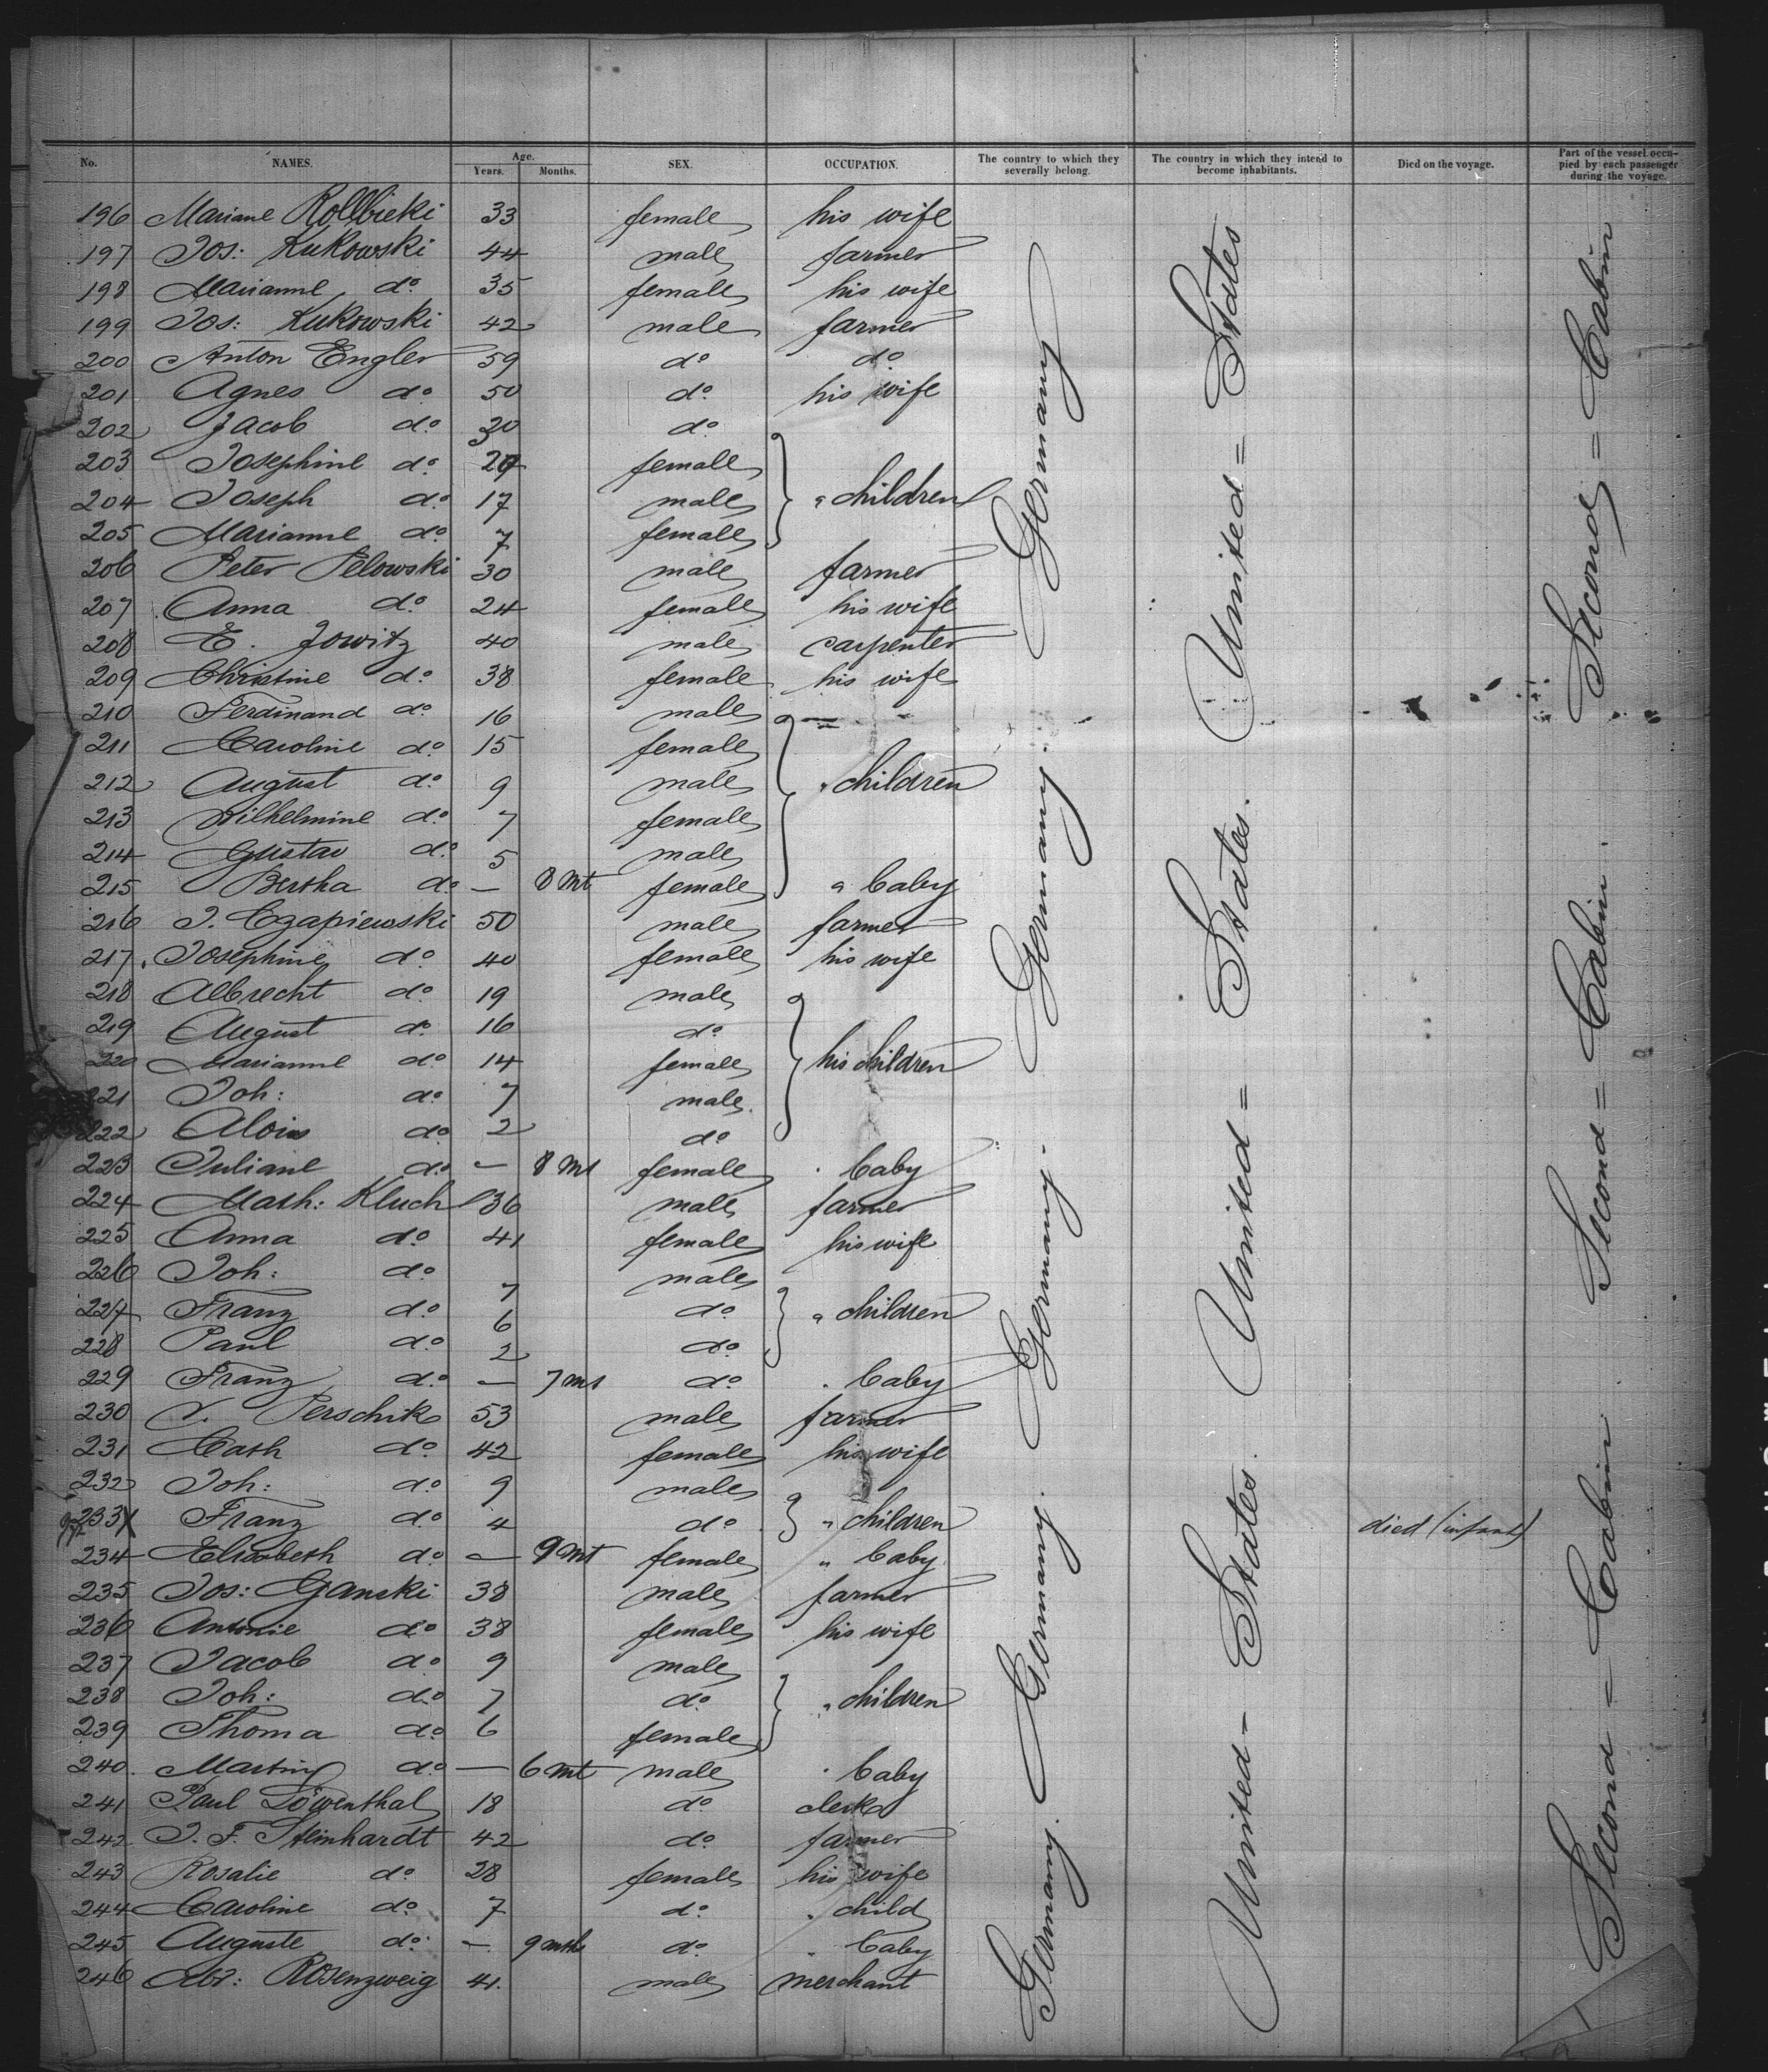 No. NAMES. Age. Years. Months. SEX. OCCUPATION. The country to which they severally belong. The country in which they intend to become inhabitants. Died on the voyage. Part of the vessel occupied by each passenger during the voyage.
196 Mariane Rollbieki 33 female his wife
197 Jos: Kukowski 44 male farmer
198 Marianne do 35 female his wife
199 Jos: Kukowski 42 male farmer
200 Anton Engler 59 do do
201 Agnes do 50 do his wife
202 Jacob do 30 do
203 Josephine do 27 female
204 Joseph do 17 male " children
205 Marianne do 7 female
206 Peter Pelowski 30 male farmer
207 Anna do 24 female his wife
208 E. Jowitz 40 male carpenter
209 Christine do 38 female his wife
210 Ferdinand do 16 male
211 Caroline do 15 female
212 August do 9 male " children
213 Wilhelmine do 7 female
214 Gustav do 5 male
215 Bertha do — 8 mt female " baby
216 J. Czapiewski 50 male farmer
217 Josephine do 40 female his wife
218 Albrecht do 19 male
219 August do 16 do
220 Marianne do 14 female his children
221 Joh: do 7 male
222 Alois do 2 do
223 Juliane do — 8 mt female " baby
224 Math: Kluch 36 male farmer
225 Anna do 41 female his wife
226 Joh: do 7 male
227 Franz do 6 do " children
228 Paul do 2 do
229 Franz do — 7 mt do " baby
230 V. Perschik 53 male farmer
231 Cath do 42 female his wife
232 Joh: do 9 male
233 X Franz do 4 do " children died (infant)
234 Elisabeth do — 9 mt female " baby
235 Jos: Ganski 38 male farmer
236 Antonie do 38 female his wife
237 Jacob do 9 male
238 Joh: do 7 do " children
239 Thoma do 6 female
240 Martin do — 6 mt male " baby
241 Paul Löwenthal 18 do clerk
242 J. F. Steinhardt 42 do farmer
243 Rosalie do 28 female his wife
244 Caroline do 7 do " child
245 Auguste do — 9 mth do " baby
246 Abr: Rosenzweig 41. male merchant
Germany. Germany. Germany. Germany. Germany
United - States. United = States. United = States
Second = Cabin Second = Cabin. Second = Cabin